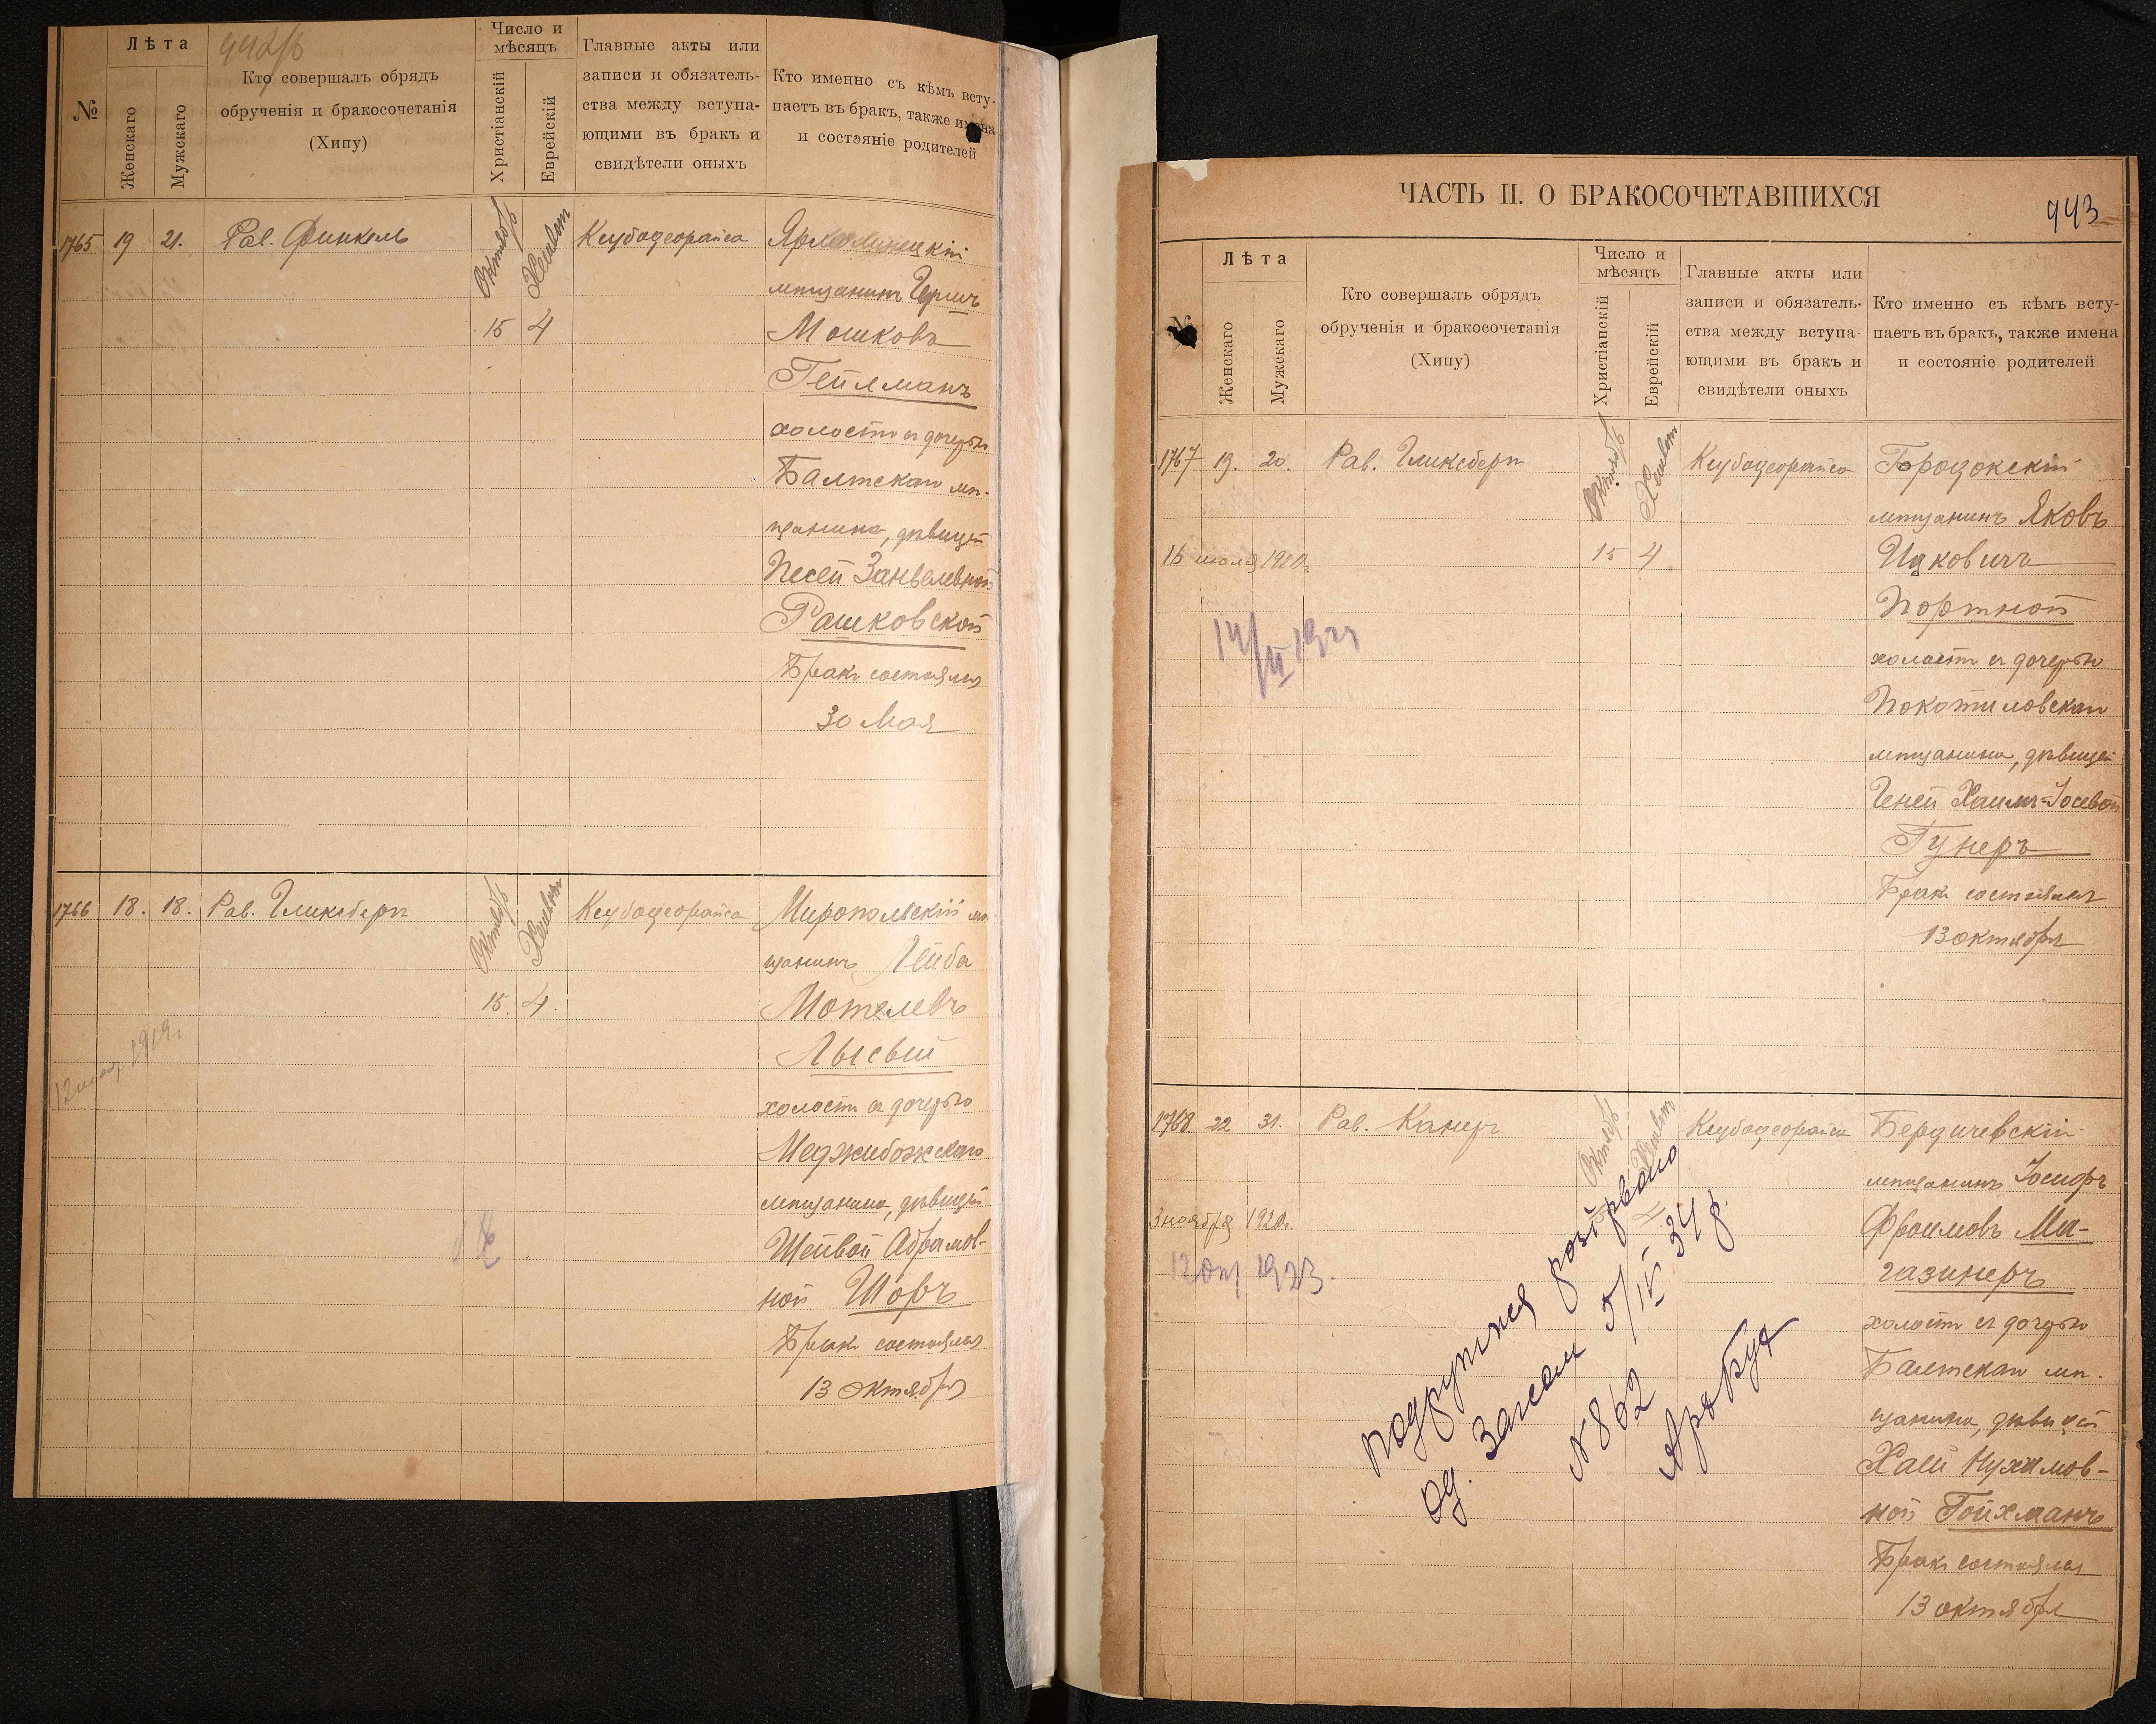 442/б
№
Лѣта
Женскаго
Мужскаго
Кто совершалъ обрядъ
обрученія и бракосочетанія
(Хипу)
Число и
мѣсяцъ
Христіанскій
Еврейскій
Главные акты или
записи и обязатель-
ства между вступа-
ющими въ бракъ и
свидѣтели оныхъ
Кто именно съ кѣмъ всту-
паетъ въ бракъ, также имена
и состояніе родителей
1765 19 21. Рав. Финкель
Октябрь
15 4
Ярмолинецкій
мѣщанинъ Гершъ
Мошковъ
Гейлманъ
холостъ съ дочерью
Балтскаго мѣ-
щанина, дѣвицей
Песей Занвелевной
Рашковской
Бракъ состоялся
30 Мая
1766 18. 18. Рав. Гликсбергъ
Октябрь
15. 4.
Миропольскій мѣ-
щанинъ Лейба
Мотелевъ
Лысый
холостъ съ дочерью
Меджибожскаго
мѣщанина, дѣвицей
Шейвой Абрамов-
ной Шоръ
Бракъ состоялся
13 октября
1919г.
ЧАСТЬ II. О БРАКОСОЧЕТАВШИХСЯ
443
№
Лѣта
Женскаго
Мужскаго
Кто совершалъ обрядъ
обрученія и бракосочетанія
(Хипу)
Число и
мѣсяцъ
Христіанскій
Еврейскій
Главные акты или
записи и обязатель-
ства между вступа-
ющими въ бракъ и
свидѣтели оныхъ
Кто именно съ кѣмъ всту-
паетъ въ бракъ, также имена
и состояніе родителей
1767 19. 20. Рав. Гликсбергъ
Октябрь
15 4
16 июля 1920г.
Городокскій
мѣщанинъ Яковъ
Ицковичъ
Портной
холостъ съ дочерью
Покотиловскаго
мѣщанина, дѣвицей
Геней Хаимъ-Іосевой
Гунеръ
Бракъ состоялся
13 октября
1768. 22 31. Рав. Канеръ
Октябрь
3 ноября 1920г.
12 окт 1923.
Бердичевскій
мѣщанинъ Іосифъ
Фроимовъ Ма-
газинеръ
холостъ съ дочерью
Балтскаго мѣ-
щанина, дѣвицей
Хаей Нухимов-
ной Гойхманъ
Бракъ состоялся
13 октября
розірвано
5/IV 34 р.
№ 862